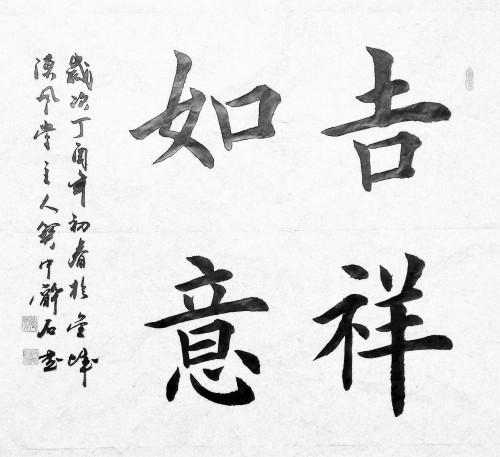 吉祥
如意
歲次丁酉年初春於金城
漢風堂主人
石書